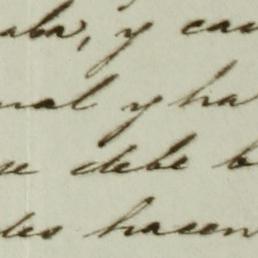 aba, y cau
nal y ha
se debe b
des hacen